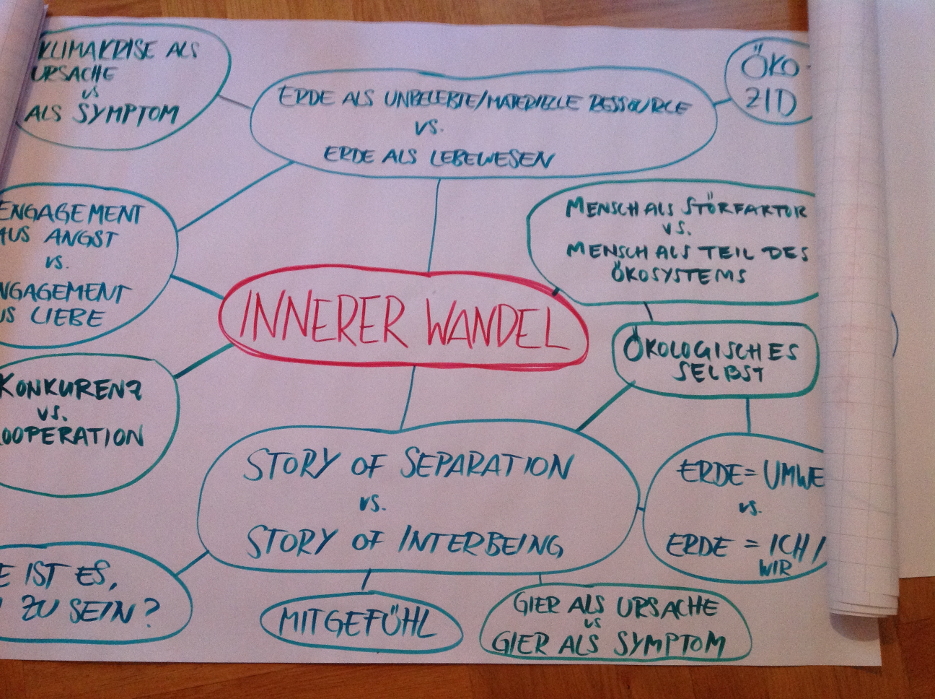 KLIMAKRISE ALS
URSACHE
vs
ALS SYMPTOM
ERDE ALS UNBELEBTE/MATERIELLE RESSOURCE
VS.
ERDE ALS LEBEWESEN
ÖKO-
ZID
ENGAGEMENT
AUS ANGST
vs.
NGAGEMENT
US LIEBE
MENSCH ALS STÖRFAKTOR
V.S.
MENSCH ALS TEIL DES
ÖKOSYSTEMS
INNERER WANDEL
ÖKOLOGISCHES
SELBST
KONKURENZ
VS.
OOPERATION
STORY OF SEPARATION
vs.
STORY OF INTERBEING
ERDE = UMWE
vs.
ERDE = ICH/
WIR
E IST ES,
ZU SEIN?
MITGEFÜHL
GIER ALS URSACHE
vs
GIER ALS SYMPTOM